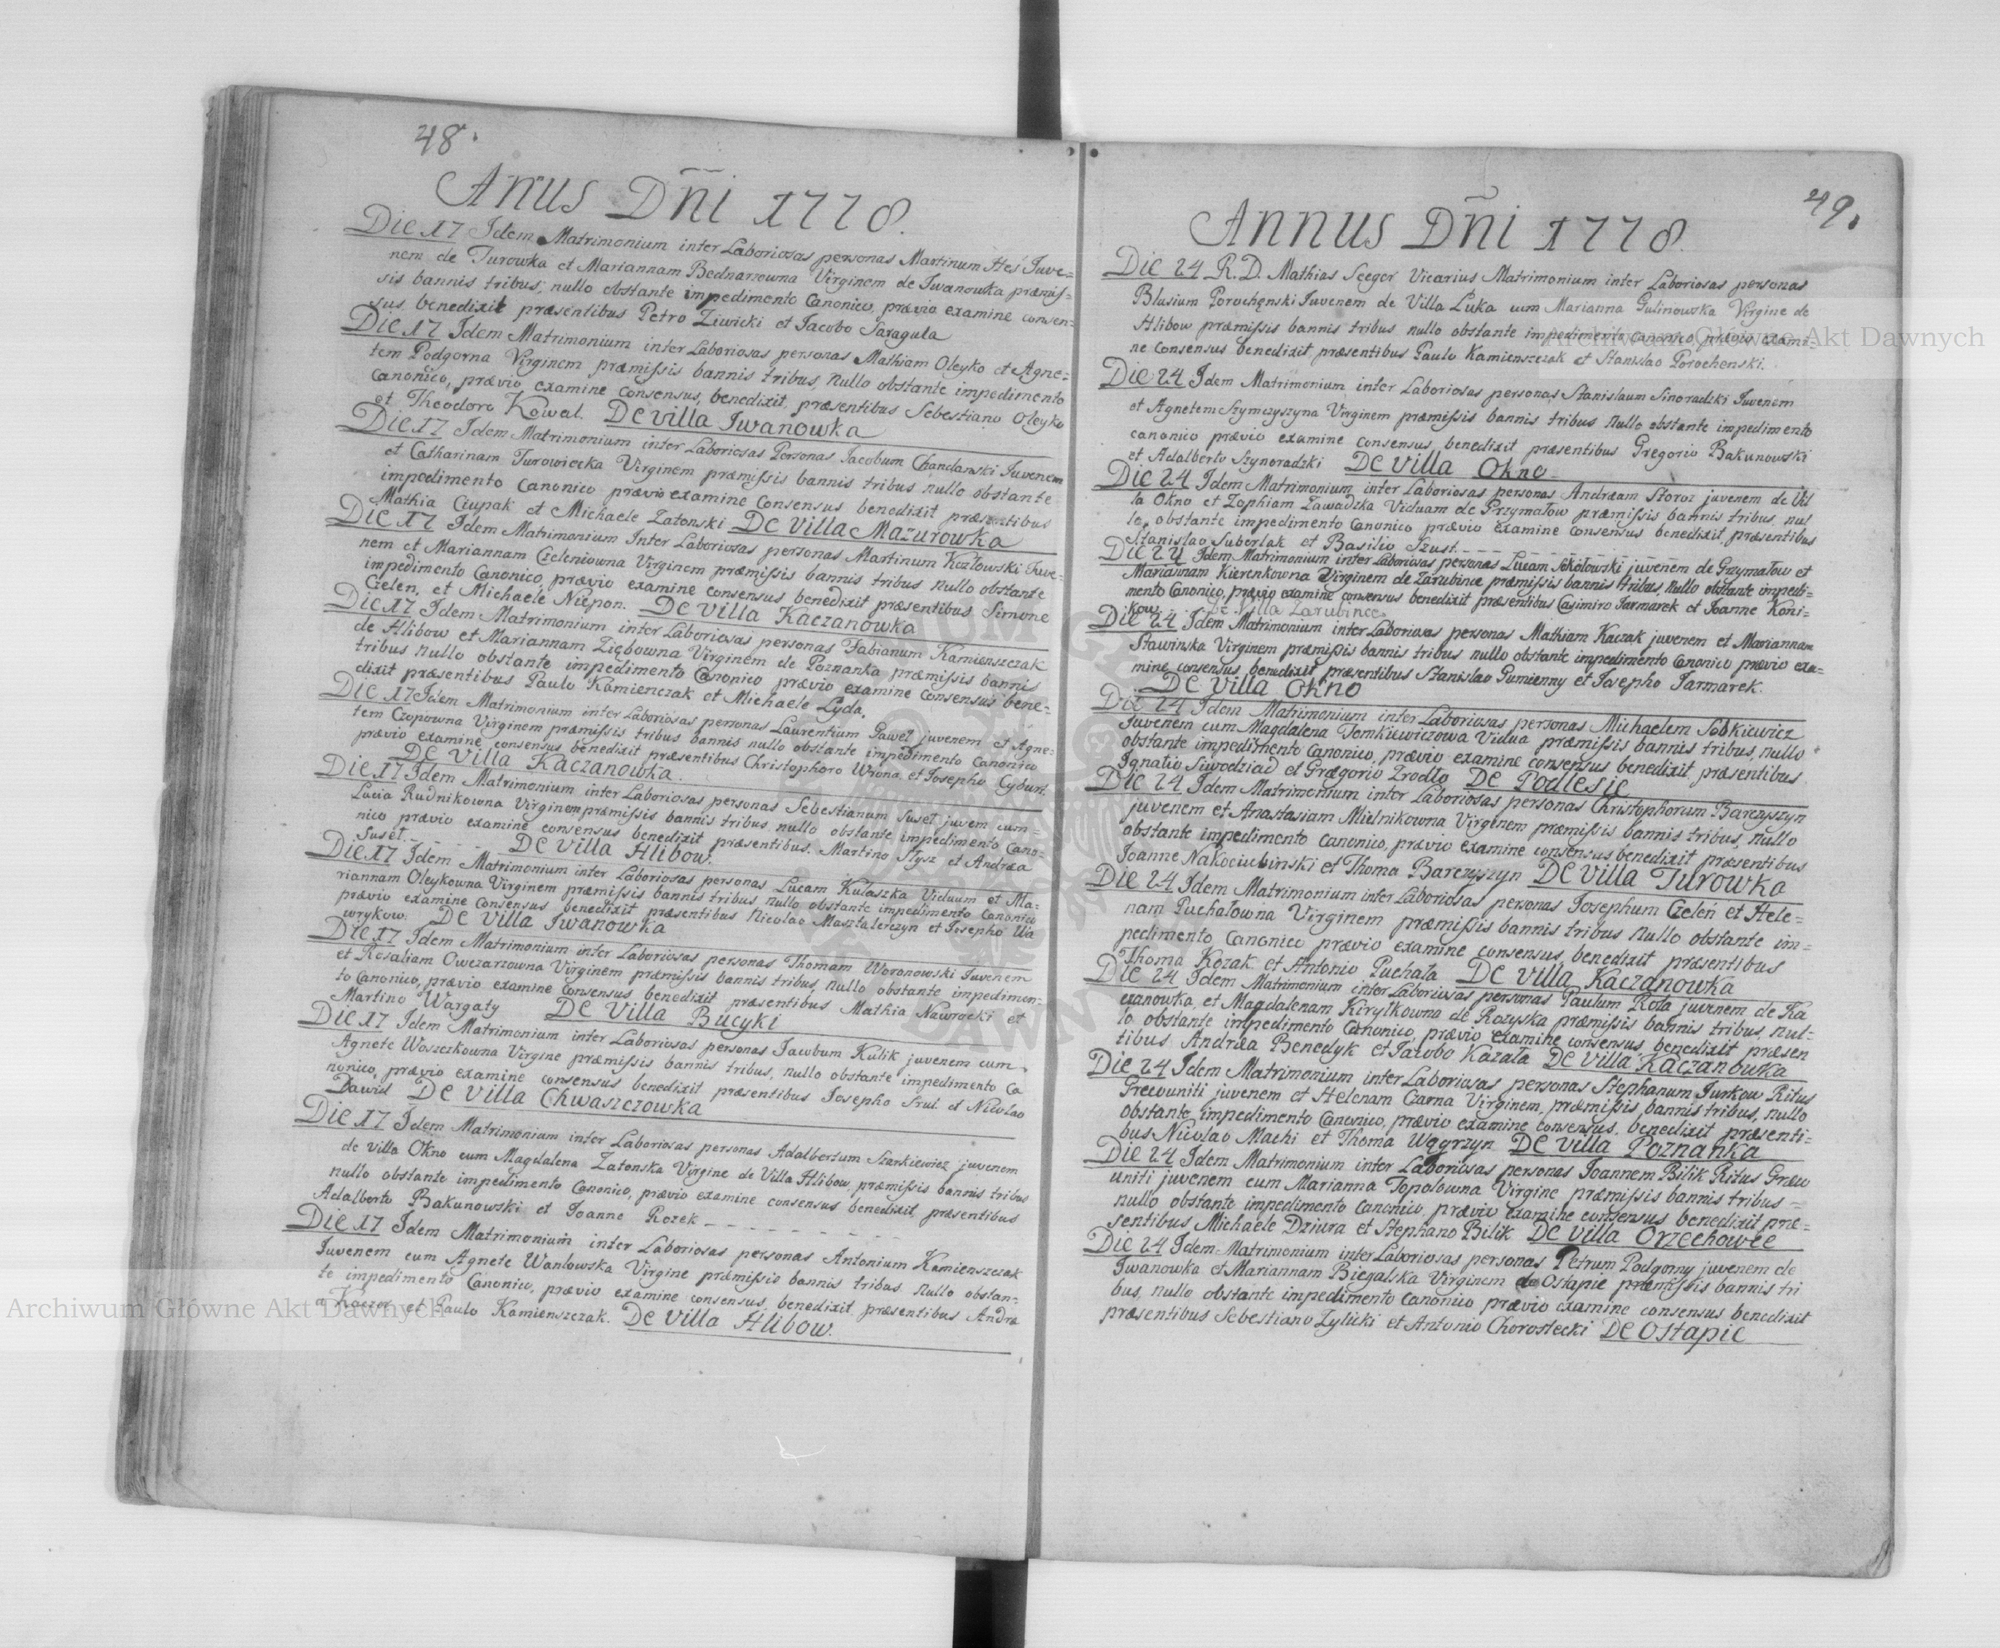 48.
Annus Dñi 1778.
Die 17 Idem Matrimonium inter Laboriosas personas Martinum Heś Juve=
nem de Turowka et Mariannam Bednarzowna Virginem de Iwanowka præmis=
sis bannis tribus, nullo obstante impedimento Canonico, prævio examine consen=
sus, benedixit præsentibus Petro Ziwicki et Jacobo Saragula
Die 17 Idem Matrimonium inter Laboriosas personas Mathiam Oleyko et Agne=
tem Podgorna Virginem præmissis bannis tribus, nullo obstante impedimento
Canonico, prævio examine consensus, benedixit, præsentibus Sebestiano Oleyko
et Theodoro Kowal. De Villa Iwanowka
Die 17 Idem Matrimonium inter Laboriosas Personas Jacobum Chandanski Juvenem
et Catharinam Turowiecka Virginem præmissis bannis tribus nullo obstante
impedimento Canonico prævio examine Consensus benedixit præsentibus
Mathia Ciupak et Michaele Zatonski De Villa Mazurowka
Die 17 Idem Matrimonium Inter Laboriosas personas Martinum Kozłowski Juve=
nem et Mariannam Cieleniowna Virginem præmissis bannis tribus nullo obstante
impedimento Canonico, prævio examine consensus benedixit præsentibus Simone
Cielen, et Michaele Niepon. De Villa Kaczanowka
Die 17 Idem Matrimonium inter Laboriosas personas Fabianum Kamienszczak
de Hlibow et Mariannam Ziębowna Virginem de Poznanka præmissis bannis
tribus nullo obstante impedimento Canonico prævio examine Consensus bene=
dixit præsentibus Paulo Kamienczak et Michaele Lyda.
Die 17 Idem Matrimonium inter Laboriosas personas Laurentium Paweł juvenem et Agne=
tem Czopowna Virginem præmissis tribus bannis nullo obstante impedimento Canonico
prævio examine consensus benedixit præsentibus Christophoro Wrona, et Josepho Cybun.
De Villa Kaczanowka.
Die 17 Idem Matrimonium inter Laboriosas personas Sebestianum Suseł juvem cum=
Lucia Rudnikowna Virginem præmissis bannis tribus nullo obstante impedimento Cano=
nico prævio examine consensus benedixit præsentibus. Martino Hysz et Andræa
Suseł. De Villa Hlibow.
Die 17 Idem Matrimonium inter Laboriosas personas Lucam Kulaszka Viduum et Ma=
riannam Oleykowna Virginem præmissis bannis tribus nullo obstante impedimento Canonico
prævio examine Consensus benedixit præsentibus Nicolao Masztalerczyn et Josepho Wa
wrykow. De Villa Iwanowka
Die 17 Idem Matrimonium inter Laboriosas personas Thomam Woronowski Juvenem
et Rosaliam Owczarzowna Virginem præmissis bannis tribus, nullo obstante impedimen=
to Canonico, prævio examine Consensus benedixit præsentibus Mathia Nawrocki et
Martino Wargaty De Villa Bucyki
Die 17 Idem Matrimonium inter Laboriosas personas Jacobum Kulik juvenem cum
Agnete Woszczkowna Virgine præmissis bannis tribus, nullo obstante impedimento Ca
nonico, prævio examine consensus benedixit præsentibus Josepho Srul et Nicolao
Dawid De Villa Chwaszczowka
Die 17 Idem Matrimonium inter Laboriosas personas Adalbertum Stankiewicz juvenem
de Villa Okno cum Magdalena Zatonska Virgine de Villa Hlibow præmissis bannis tribus
nullo obstante impedimento Canonico, prævio examine consensus benedixit, præsentibus
Adalberto Bakunowski et Joanne Rozek
Die 17 Idem Matrimonium inter Laboriosas personas Antonium Kamienszczak
Juvenem cum Agnete Wanlowska Virgine præmissis bannis tribus nullo obstan=
te impedimento Canonico, prævio examine consensus, benedixit præsentibus Andræ
a Kaczor et Paulo Kamienszczak. De Villa Hlibow.
49.
Annus Dñi 1778.
Die 24 R. D. Mathias Seeger Vicarius Matrimonium inter Laboriosas personas
Blasium Porochęnski Juvenem de Villa Luka cum Marianna Gulinowska Virgine de
Hlibow præmissis bannis tribus nullo obstante impedimento Canonico prævio exami=
ne Consensus benedixit præsentibus Paulo Kamienszczak et Stanislao Porochenski.
Die 24 Idem Matrimonium inter Laboriosas personas Stanislaum Sinoradzki Juvenem
et Agnetem Szymczyszyna Virginem præmissis bannis tribus nullo obstante impedimento
canonico prævio examine consensus benedixit præsentibus Gregorio Bakunowski
et Adalberto Szynoradzki De Villa Okno
Die 24 Idem Matrimonium inter Laboriosas personas Andræam Storoz juvenem de Vil
la Okno et Zophiam Zawadzka Viduam de Grzymałow præmissis bannis tribus, nul
lo, obstante impedimento Canonico prævio examine Consensus benedixit, præsentibus
Stanislao Suberlak et Basilio Szust.
Die 24 Idem Matrimonium inter Laboriosas personas Lucam Sokołowski juvenem de Grzymałow et
Mariannam Kierenkowna Virginem de Zarubince præmissis bannis tribus, nullo obstante impedi=
mento Canonico, prævio examine consensus benedixit præsentibus Casimiro Jarmarek et Joanne Koni=
kow. De Villa Zarubince.
Die 24 Idem Matrimonium inter Laboriosas personas Mathiam Kaczak juvenem et Mariannam
Stawinska Virginem præmissis bannis tribus nullo obstante impedimento Canonico prævio exa=
mine consensus benedixit præsentibus Stanislao Gumienny et Josepho Jarmarek.
De Villa Okno
Die 24 Idem Matrimonium inter Laboriosas personas Michaelem Sobkiewicz
Juvenem cum Magdalena Tomkiewiczowa Vidua præmissis bannis tribus, nullo
obstante impedimento Canonico, prævio examine consensus benedixit, præsentibus
Ignatio Siwodziad et Grægorio Zrodło De Podlesie
Die 24 Idem Matrimonium inter Laboriosas personas Christophorum Barczyszyn
juvenem et Anastasiam Mielnikowna Virginem præmissis bannis tribus, nullo
obstante impedimento Canonico, prævio examine consensus benedixit præsentibus
Joanne Nakociubinski et Thoma Barczyszyn De Villa Turowka
Die 24 Idem Matrimonium inter Laboriosas personas Josephum Czeleń et Hele=
nam Puchałowna Virginem præmissis bannis tribus nullo obstante im=
pedimento Canonico prævio examine consensus, benedixit præsentibus
Thoma Kozak et Antonio Puchala De Villa Kaczanowka
Die 24 Idem Matrimonium inter Laboriosas personas Paulum Rola juvenem de Ka
czanowka, et Magdalenam Kiryłkowna de Rozyska præmissis bannis tribus, nul=
lo obstante impedimento Canonico, prævio examine consensus benedixit præsen
tibus Andræa Benedyk et Jacobo Kazała De Villa Kaczanowka
Die 24 Idem Matrimonium inter Laboriosas personas Stephanum Jurkow Ritus
Grecouniti juvenem et Helenam Czarna Virginem, præmissis bannis tribus, nullo
obstante impedimento Canonico, prævio examine consensus, benedixit præsenti=
bus Nicolao Machi et Thoma Węgrzyn De Villa Poznanka
Die 24 Idem Matrimonium inter Laboriosas personas Joannem Bilik Ritus Græco
uniti juvenem cum Marianna Topolowna Virgine præmissis bannis tribus=
nullo obstante impedimento Canonico, prævio examine consensus benedixit præ=
sentibus Michaele Dziura et Stephano Bilik De Villa Orzechowce
Die 24 Idem Matrimonium inter Laboriosas personas Petrum Podgorny juvenem de
Iwanowka et Mariannam Biegalska Virginem de Ostapie præmissis bannis tri
bus, nullo obstante impedimento Canonico prævio examine consensus benedixit
præsentibus Sebestiano Zylicki et Antonio Chorostecki De Ostapie
Archiwum Główne Akt Dawnych
Archiwum Główne Akt Dawnych